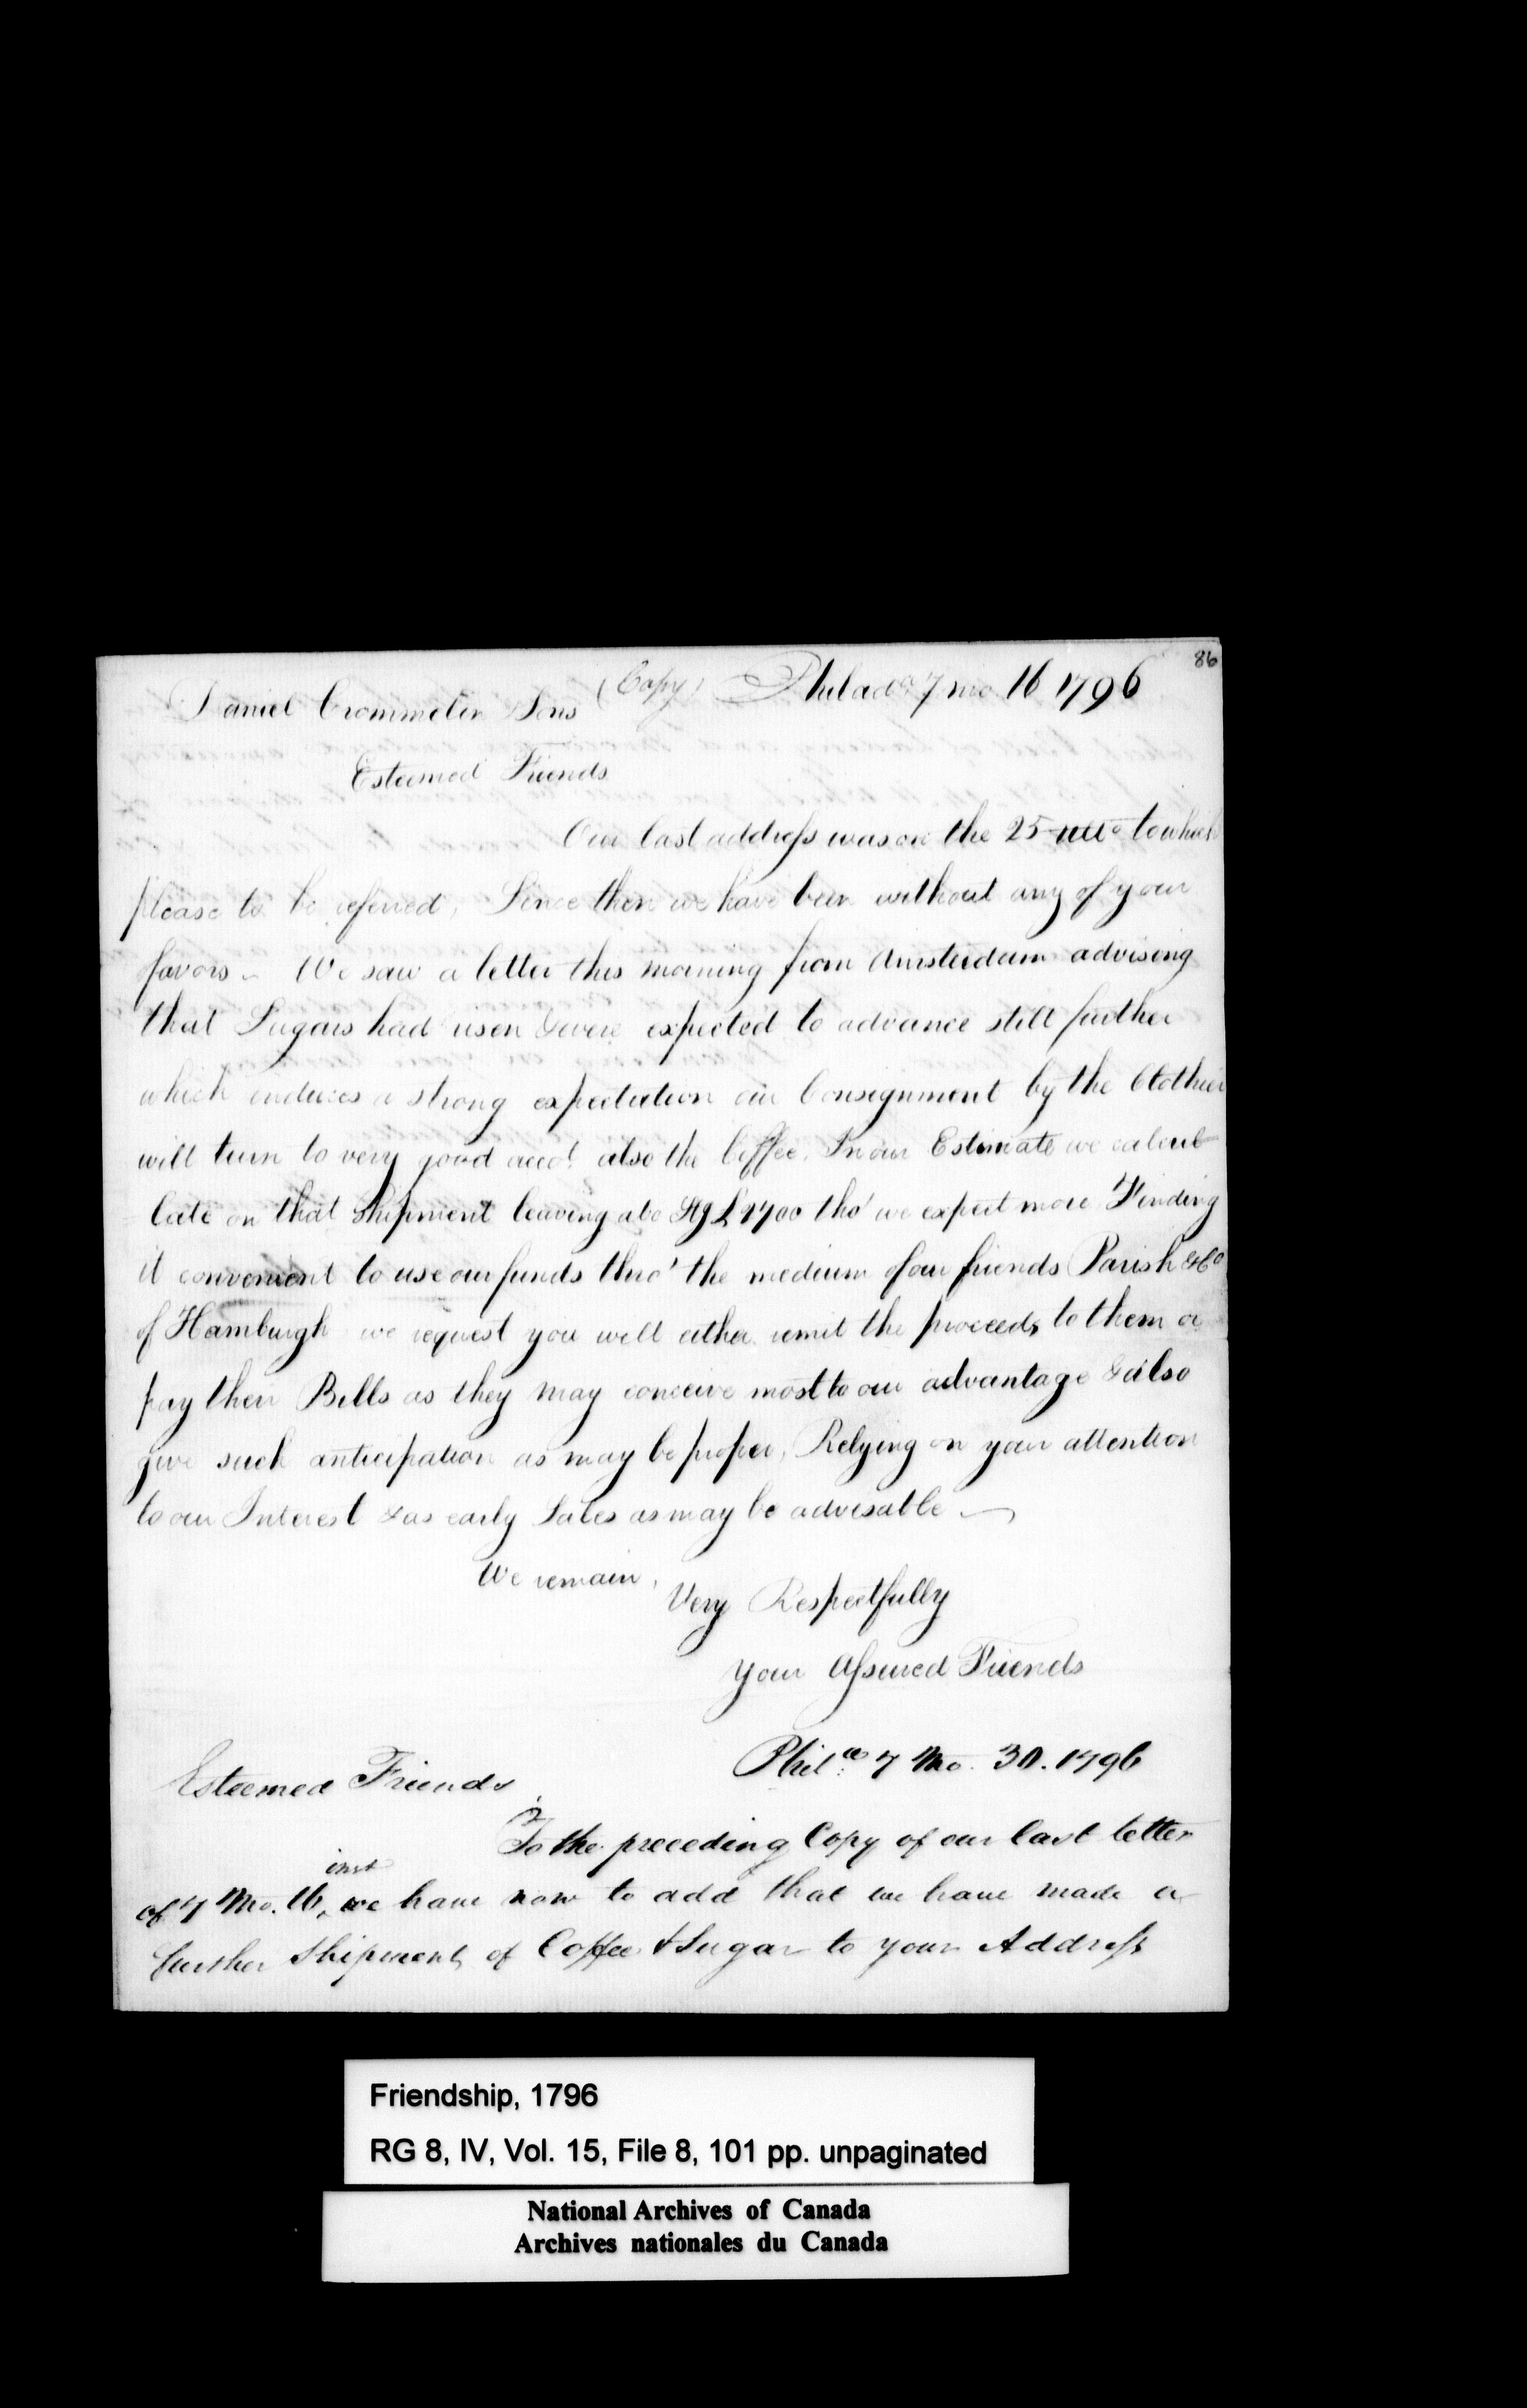 86
(Copy) Philada. 7 mo 16 1796
Daniel Crommelin & Sons
Esteemed Friends
Our last address was on the 25 ulto to which
please to be referred, Since then we have been without any of your
favors - We saw a letter this morning from Amsterdam advising
that Sugars had risen & were expected to advance still further
which induces a strong expectation our Consignment by the
will turn to very good acct. also the Coffee. In our Estimate we calcu
late on that Shipment leaving abo Stg £1700 tho' we expect more Finding
it convenient to use our funds thro' the medium of our friends Parish & Co
of Hamburgh we request you will either remit the proceeds to them or
pay their Bills as they may conceive most to our advantage & also
give such anticipation as may be proper, Relying on your attention
to our Interest & as early Sales as may be advisable —
We remain,
Very Respectfully
Your Assured Friends
Phila. 7 Mo. 30. 1796
Esteemed Friends,
To the preceding Copy of our last letter
of 7 Mo. 16, inst we have now to add that we have made a
further Shipment of Coffee & Sugar to your Address
Friendship, 1796
RG 8, IV, Vol. 15, File 8, 101 pp. unpaginated
National Archives of Canada
Archives nationales du Canada